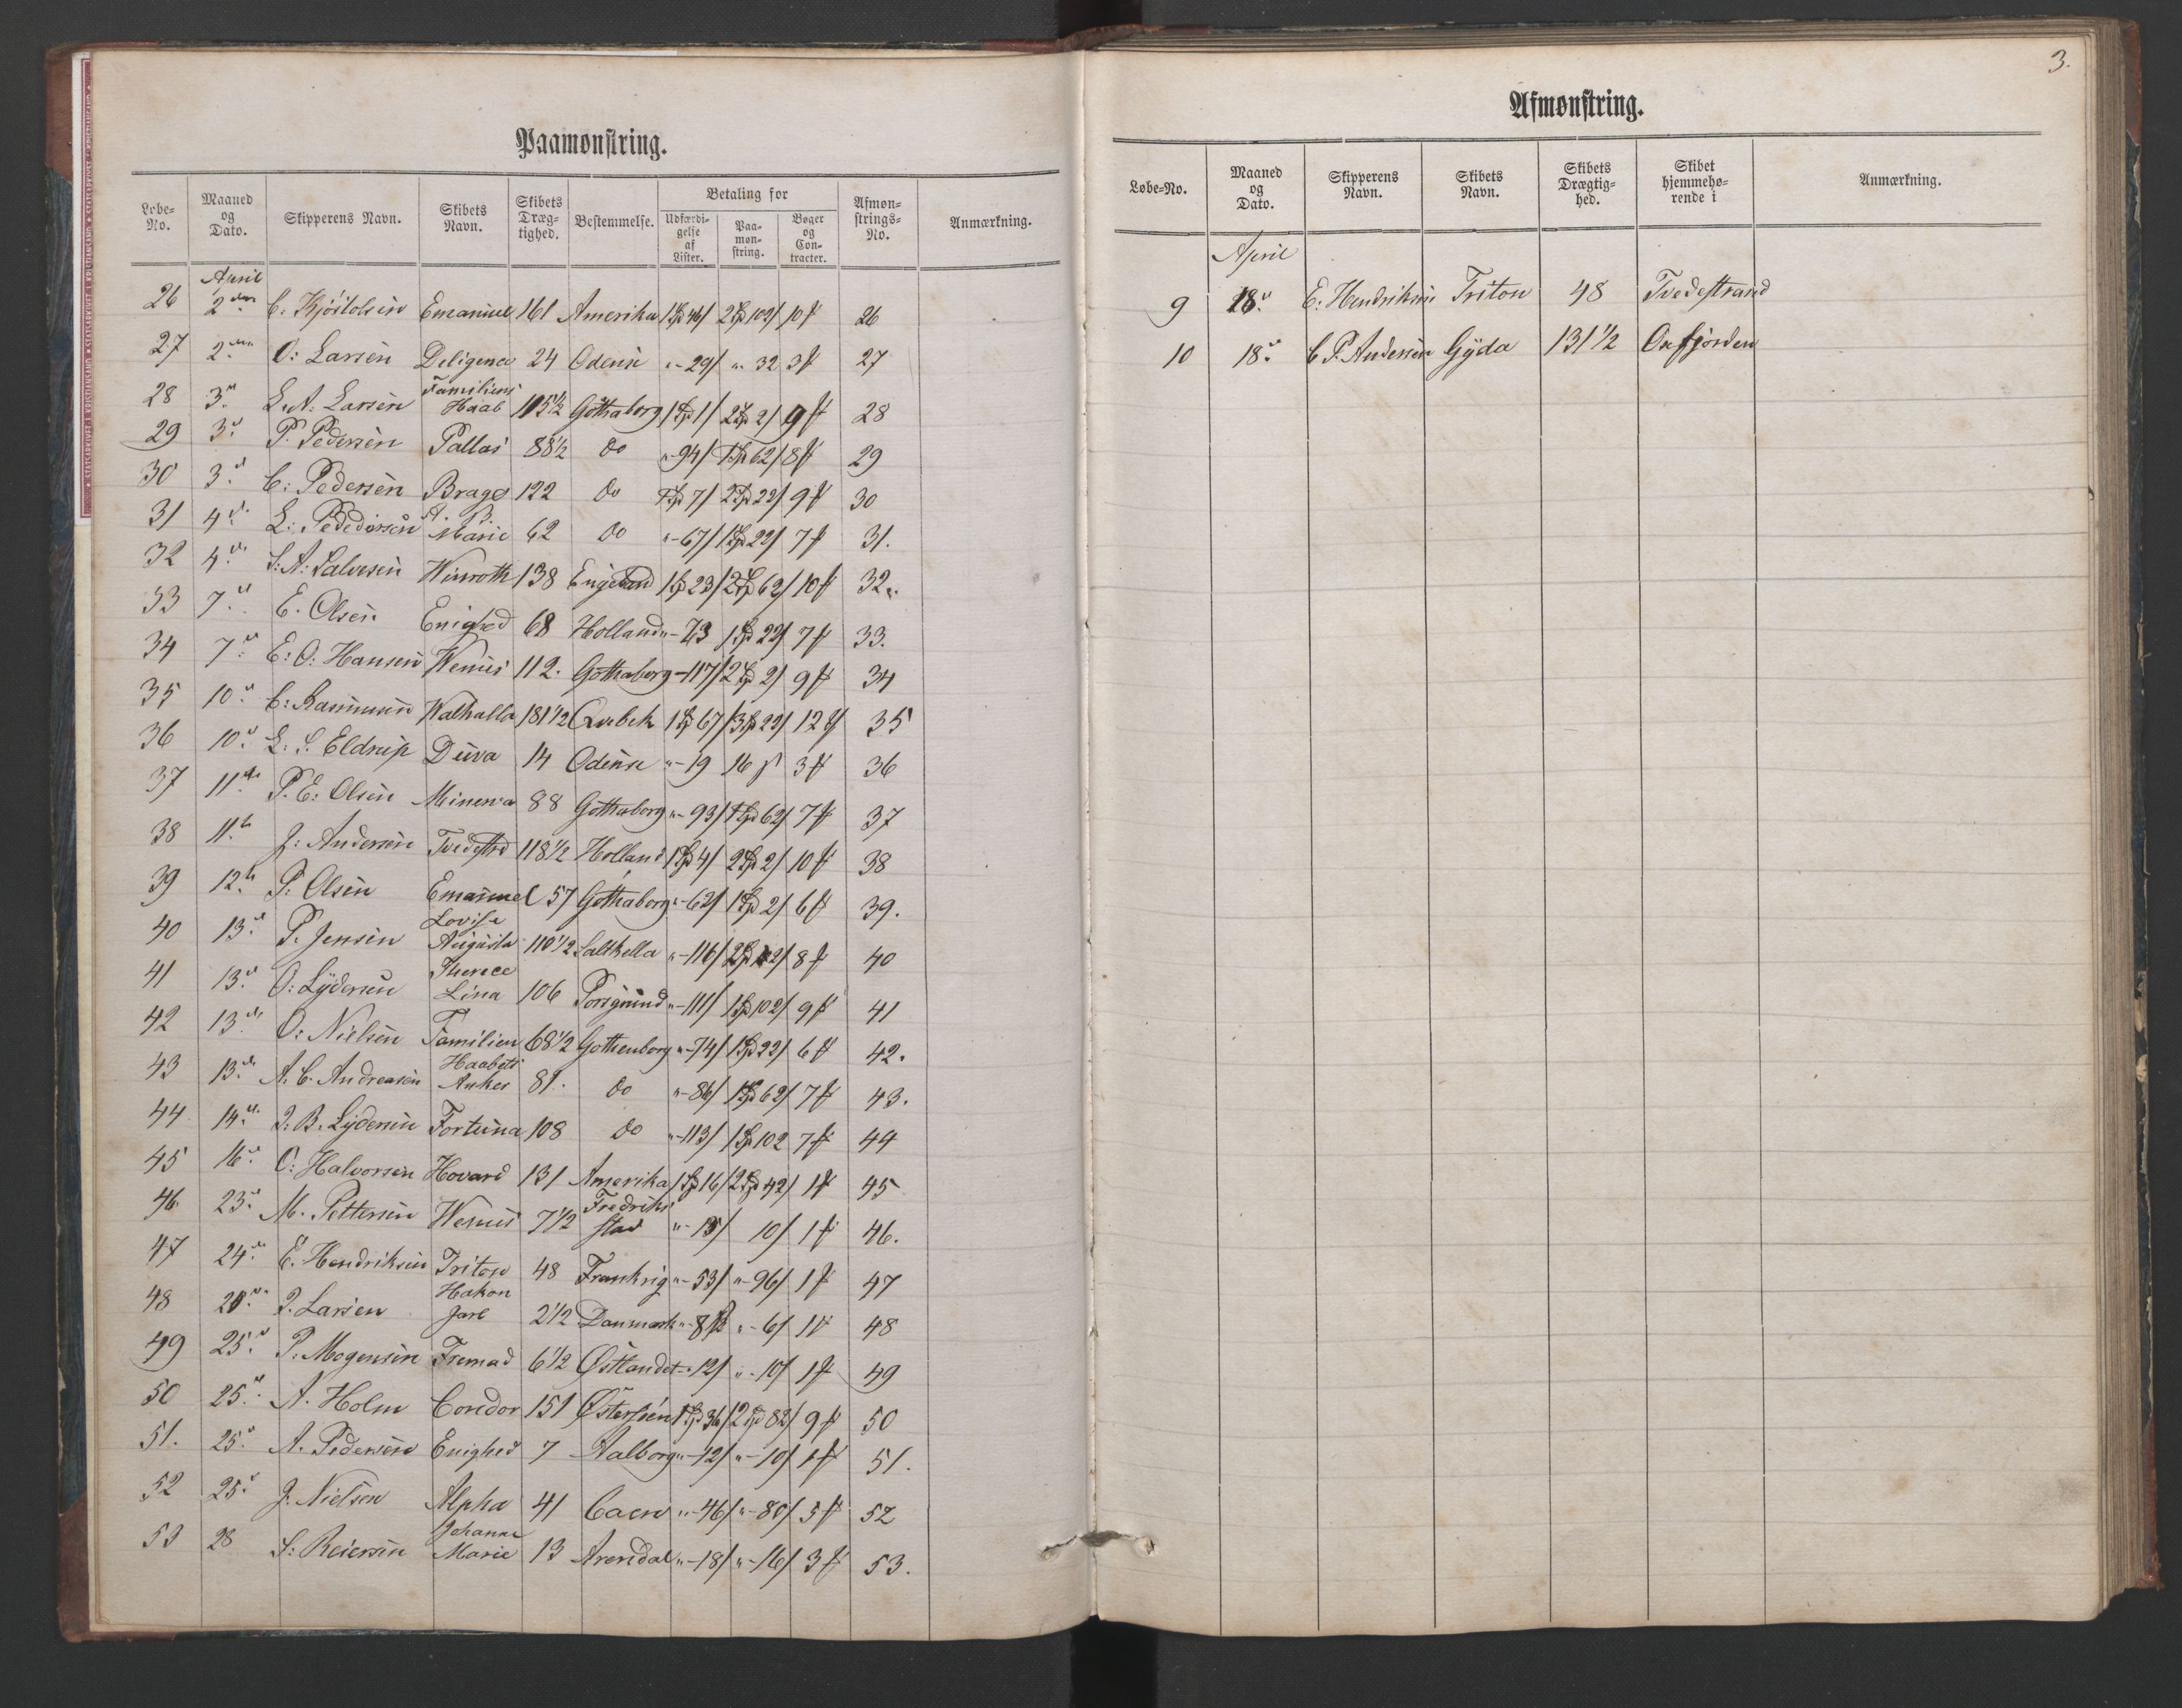 Paamønstring.
Løbe-No. Maaned og Dato. Skipperens Navn. Skibets Navn. Skibets Dræg-tighed. Bestemmelse. Betaling for Udfærdi-gelse af Lister. Paa-møn-string. Bøger og Con-tracter. Afmøn-strings-No. Anmærkning.
April
26 2den C. Kjöstolsen Emanuel 161 Amerika 1 46 2 102 10 26
27 2den O: Larsen Deligence 24 Odense " - 29 " 32 3 27
28 3 L. A. Larsen Familiens Haab 115½ Göthaborg 1 1 2 2 9 28
29 3 P. Pedersen Pallas 88½ do " 94 1 62 8 29
30 3 C: Pedersen Brage 122 do 1 7 2 22 9 30
31 4 L: Pededersen Marie 62 do " - 67 1 22 7 31.
32 4 S: A: Salvesen Winroth 138 Engeland 1 23 2 62 10 32
33 7 E. Olsen Enighed 68 Holland " - 73 1 22 7 33.
34 7 E: O: Hansen Wenus 112. Gothaborg - 117 2 2 9 34
35 10 C: Rasmusen Walhalla 181½ Qvebek 1 67 3 22 12 35
36 10 L. S. Eldrup Duva 14 Odense " - 19 16 3 36
37 11 P. E: Olsen Minerva 88 Göthaborg " - 93 1 62 7 37
38 11 J: Andersen Tvedestrd 118½ Holland 1 4 2 2 10 38
39 12 P: Olsen Emanuel 57 Gothaborg " - 62 1 2 6 39.
40 13 P. Jensen Lovise Augusta 110½ Saltkella " - 116 2 2 8 40
41 13 O: Lydersen Therece Lina 106 Porsgrund " - 111 1 102 9 41
42 13 O: Nielsen Familien 68½ Gothenborg " - 74 1 22 6 42.
43 13 A. C. Andreasen Haabets Anker 81. do " - 86 1 62 7 43.
44 14 J. B. Lydersen Fortuna 108 do " - 113 1 102 7 44
45 16 O: Halvorsen Hovard 131 Amerika 1 16 2 42 1 45
46. 23 M. Pettersen Wenus 7½ Fredriks stad " - 13 10 1 46.
47 24 E. Hendriksen Triton 48 Frankrig " - 53 " - 96 1 47
48 J. Larsen Hakon Jarl 2½ Danmark " - 8 " - 6 1 48
49 25 P. Mogensen Fremad 6½ Østlandet " 12 " - 10 1 49
50 25 N. Holm Condor 151 Østersöen 1 36 2 82 9 50
51. 25 A. Pedersen Enighed 7 Aalborg " - 12 " - 10 1 51.
52 25 J. Nielsen Alpha 41 Caen " - 46 " - 80 5 52
53 28 S: Reiersen Johanne Marie 13 Arendal " - 18 " - 16 3 53.
3.
Afmønstring.
Løbe-No. Maaned og Dato. Skipperens Navn. Skibets Navn. Skibets Drægtig-hed. Skibet hjemmehø-rende i Anmærkning.
April
9 18 E: Hendriksen Triton 48 Tvedestrand
10 18 C P. Andersen Gyda 131½ Oxefjorden